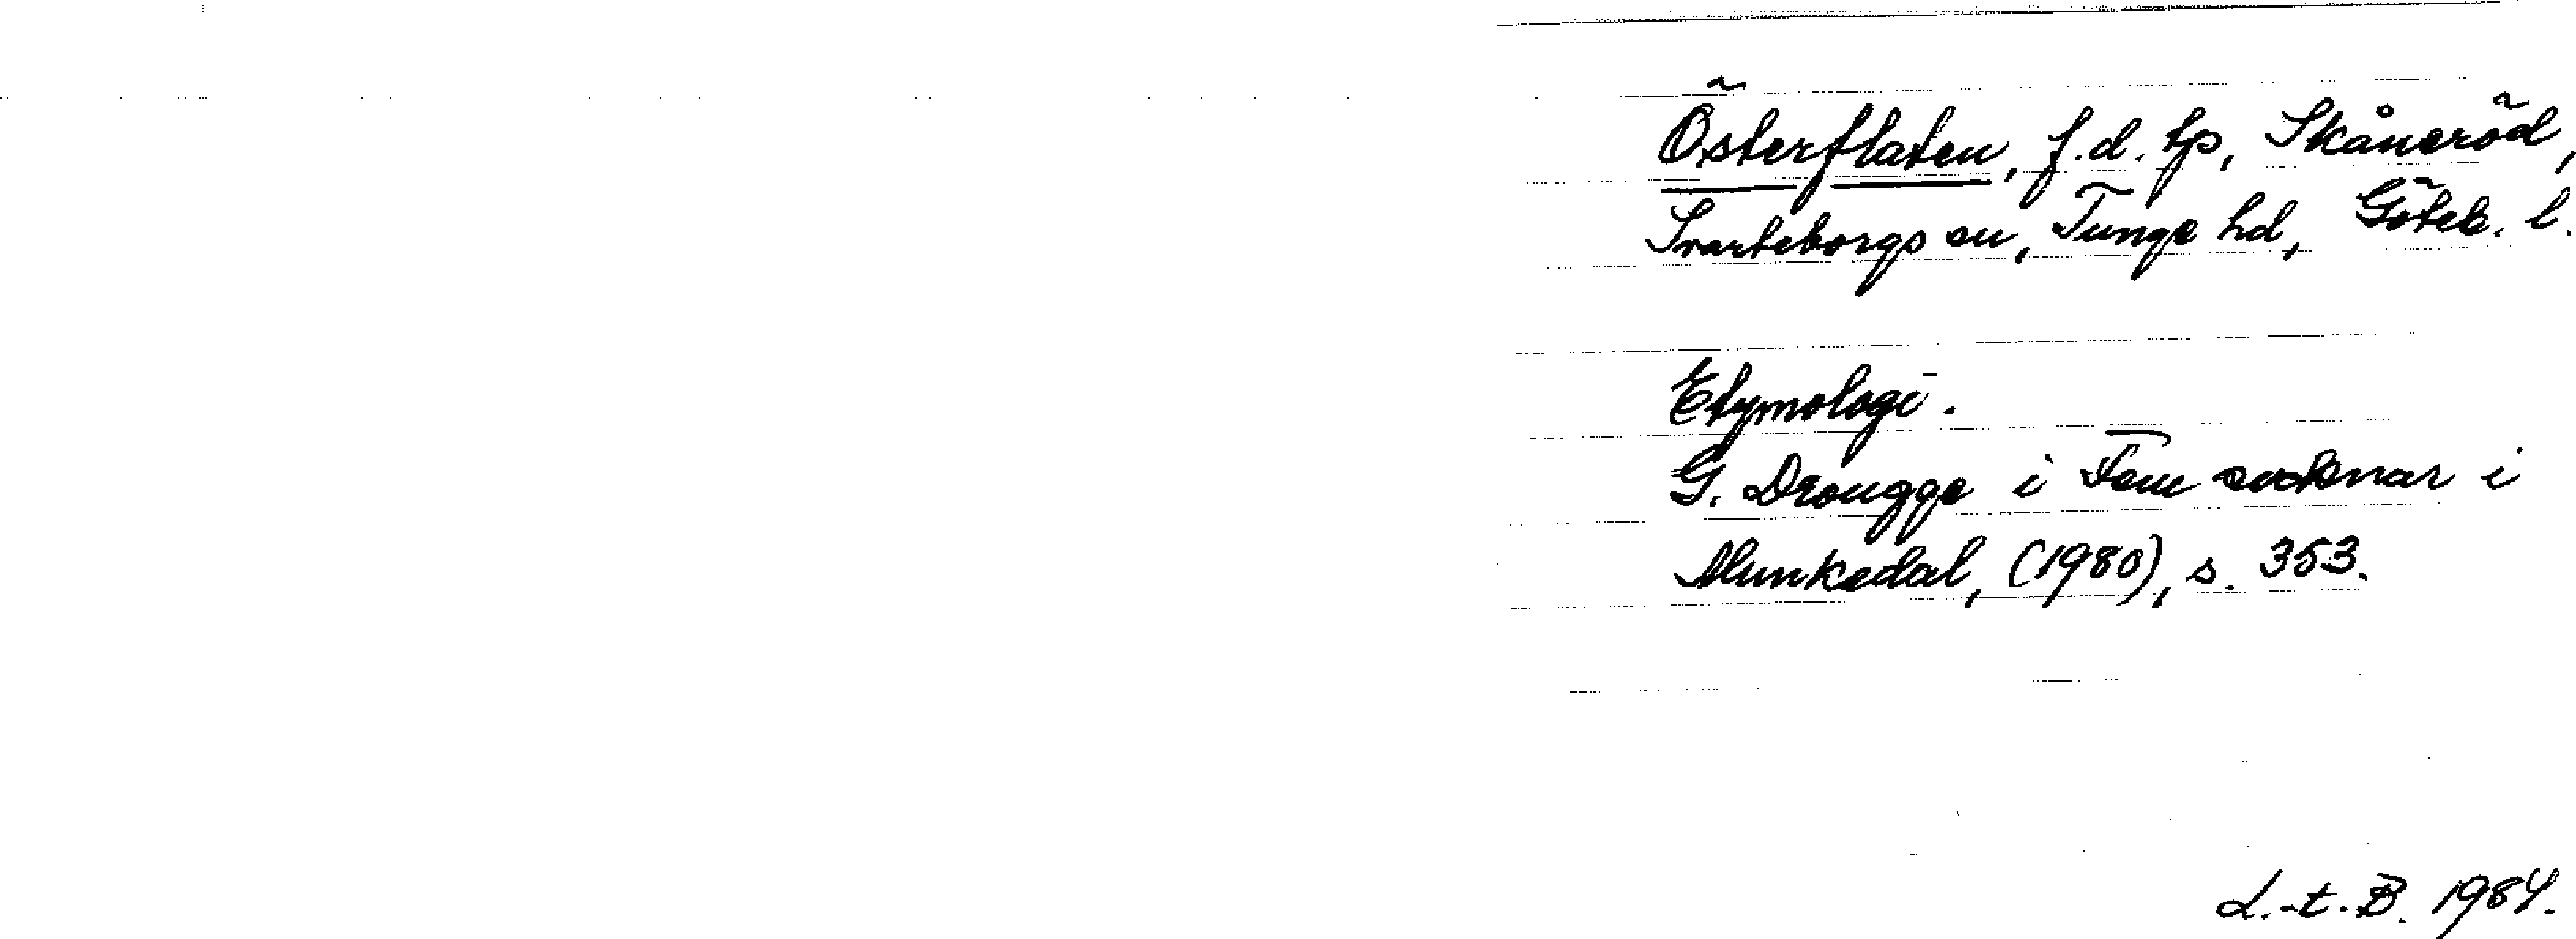 Österflaten, f.d. tp, Skåneröd,
Svarteborgs sn, Tunge hd, Göteb. l.
Etymologi.
G. Drougge i Fem socknar i
Munkedal, (1980), s. 353.
L.-t. B. 1984.